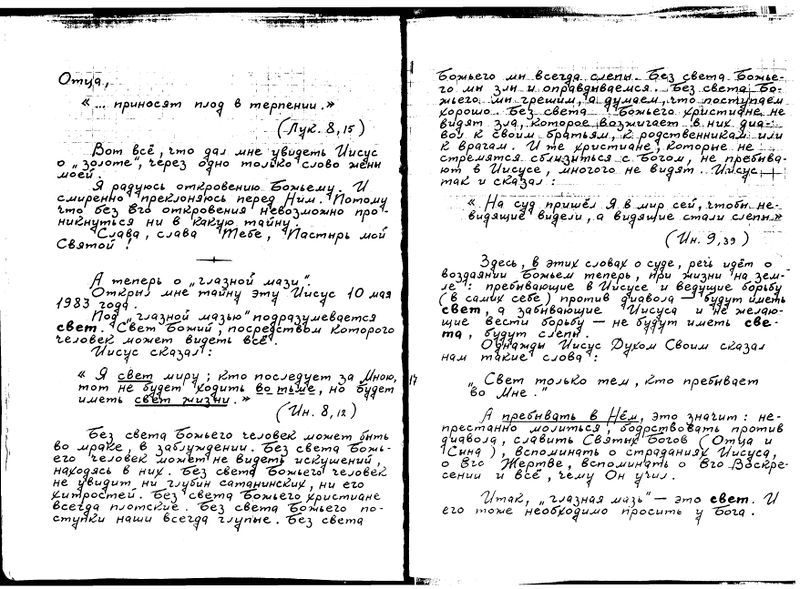 Отца,
«... приносят плод в терпении.»
(Лук. 8,15)
Вот всё, что дал мне увидеть Иисус
о „золоте“, через одно только слово жены
моей.
Я радуюсь откровению Божьему. И
смиренно преклоняюсь перед Ним. Потому
что без Его откровения невозможно про-
никнуться ни в какую тайну.
Слава, слава Тебе, Пастырь мой
Святой!
А теперь о „глазной мази“.
Открыл мне тайну эту Иисус 10 мая
1983 года.
Под „глазной мазью“ подразумевается
свет. Свет Божий, посредством которого
человек может видеть всё.
Иисус сказал:
« Я свет миру; кто последует за Мною,
тот не будет ходить во тьме, но будет
иметь свет жизни.»
(Ин. 8,12)
Без света Божьего человек может быть
во мраке, в заблуждении. Без света Божь-
его человек может не видеть искушений,
находясь в них. Без света Божьего человек
не увидит ни глубин сатанинских, ни его
хитростей. Без света Божьего христиане
всегда плотские. Без света Божьего по-
ступки наши всегда глупые. Без света
17
Божьего мы всегда слепы. Без света Божье-
го мы злы и оправдываемся. Без света Бо-
жьего мы грешим, а думаем, что поступаем
хорошо. Без света Божьего христиане не
видят зла, которое возжигает в них диа-
вол к своим братьям, к родственникам или
к врагам. И те христиане, которые не
стремятся сблизиться с Богом, не пребыва-
ют в Иисусе, многого не видят. Иисус
так и сказал:
« На суд пришёл Я в мир сей, чтобы не-
видящие видели, а видящие стали слепы»
(Ин. 9,39)
Здесь, в этих словах о суде, речь идёт о
воздаянии Божьем теперь, при жизни на зем-
ле: пребывающие в Иисусе и ведущие борьбу
(в самих себе) против диавола — будут иметь
свет, а забывающие Иисуса и не желаю-
щие вести борьбу — не будут иметь све-
та, будут слепы.
Однажды Иисус Духом Своим сказал
нам такие слова:
„ Свет только тем, кто пребывает
во Мне.“
А пребывать в Нём, это значит: не-
престанно молиться, бодрствовать против
диавола, славить Святых Богов (Отца и
Сына), вспоминать о страданиях Иисуса,
о Его Жертве, вспоминать о Его Воскре-
сении и всё, чему Он учил.
Итак, „глазная мазь“ — это свет. И
его тоже необходимо просить у Бога.